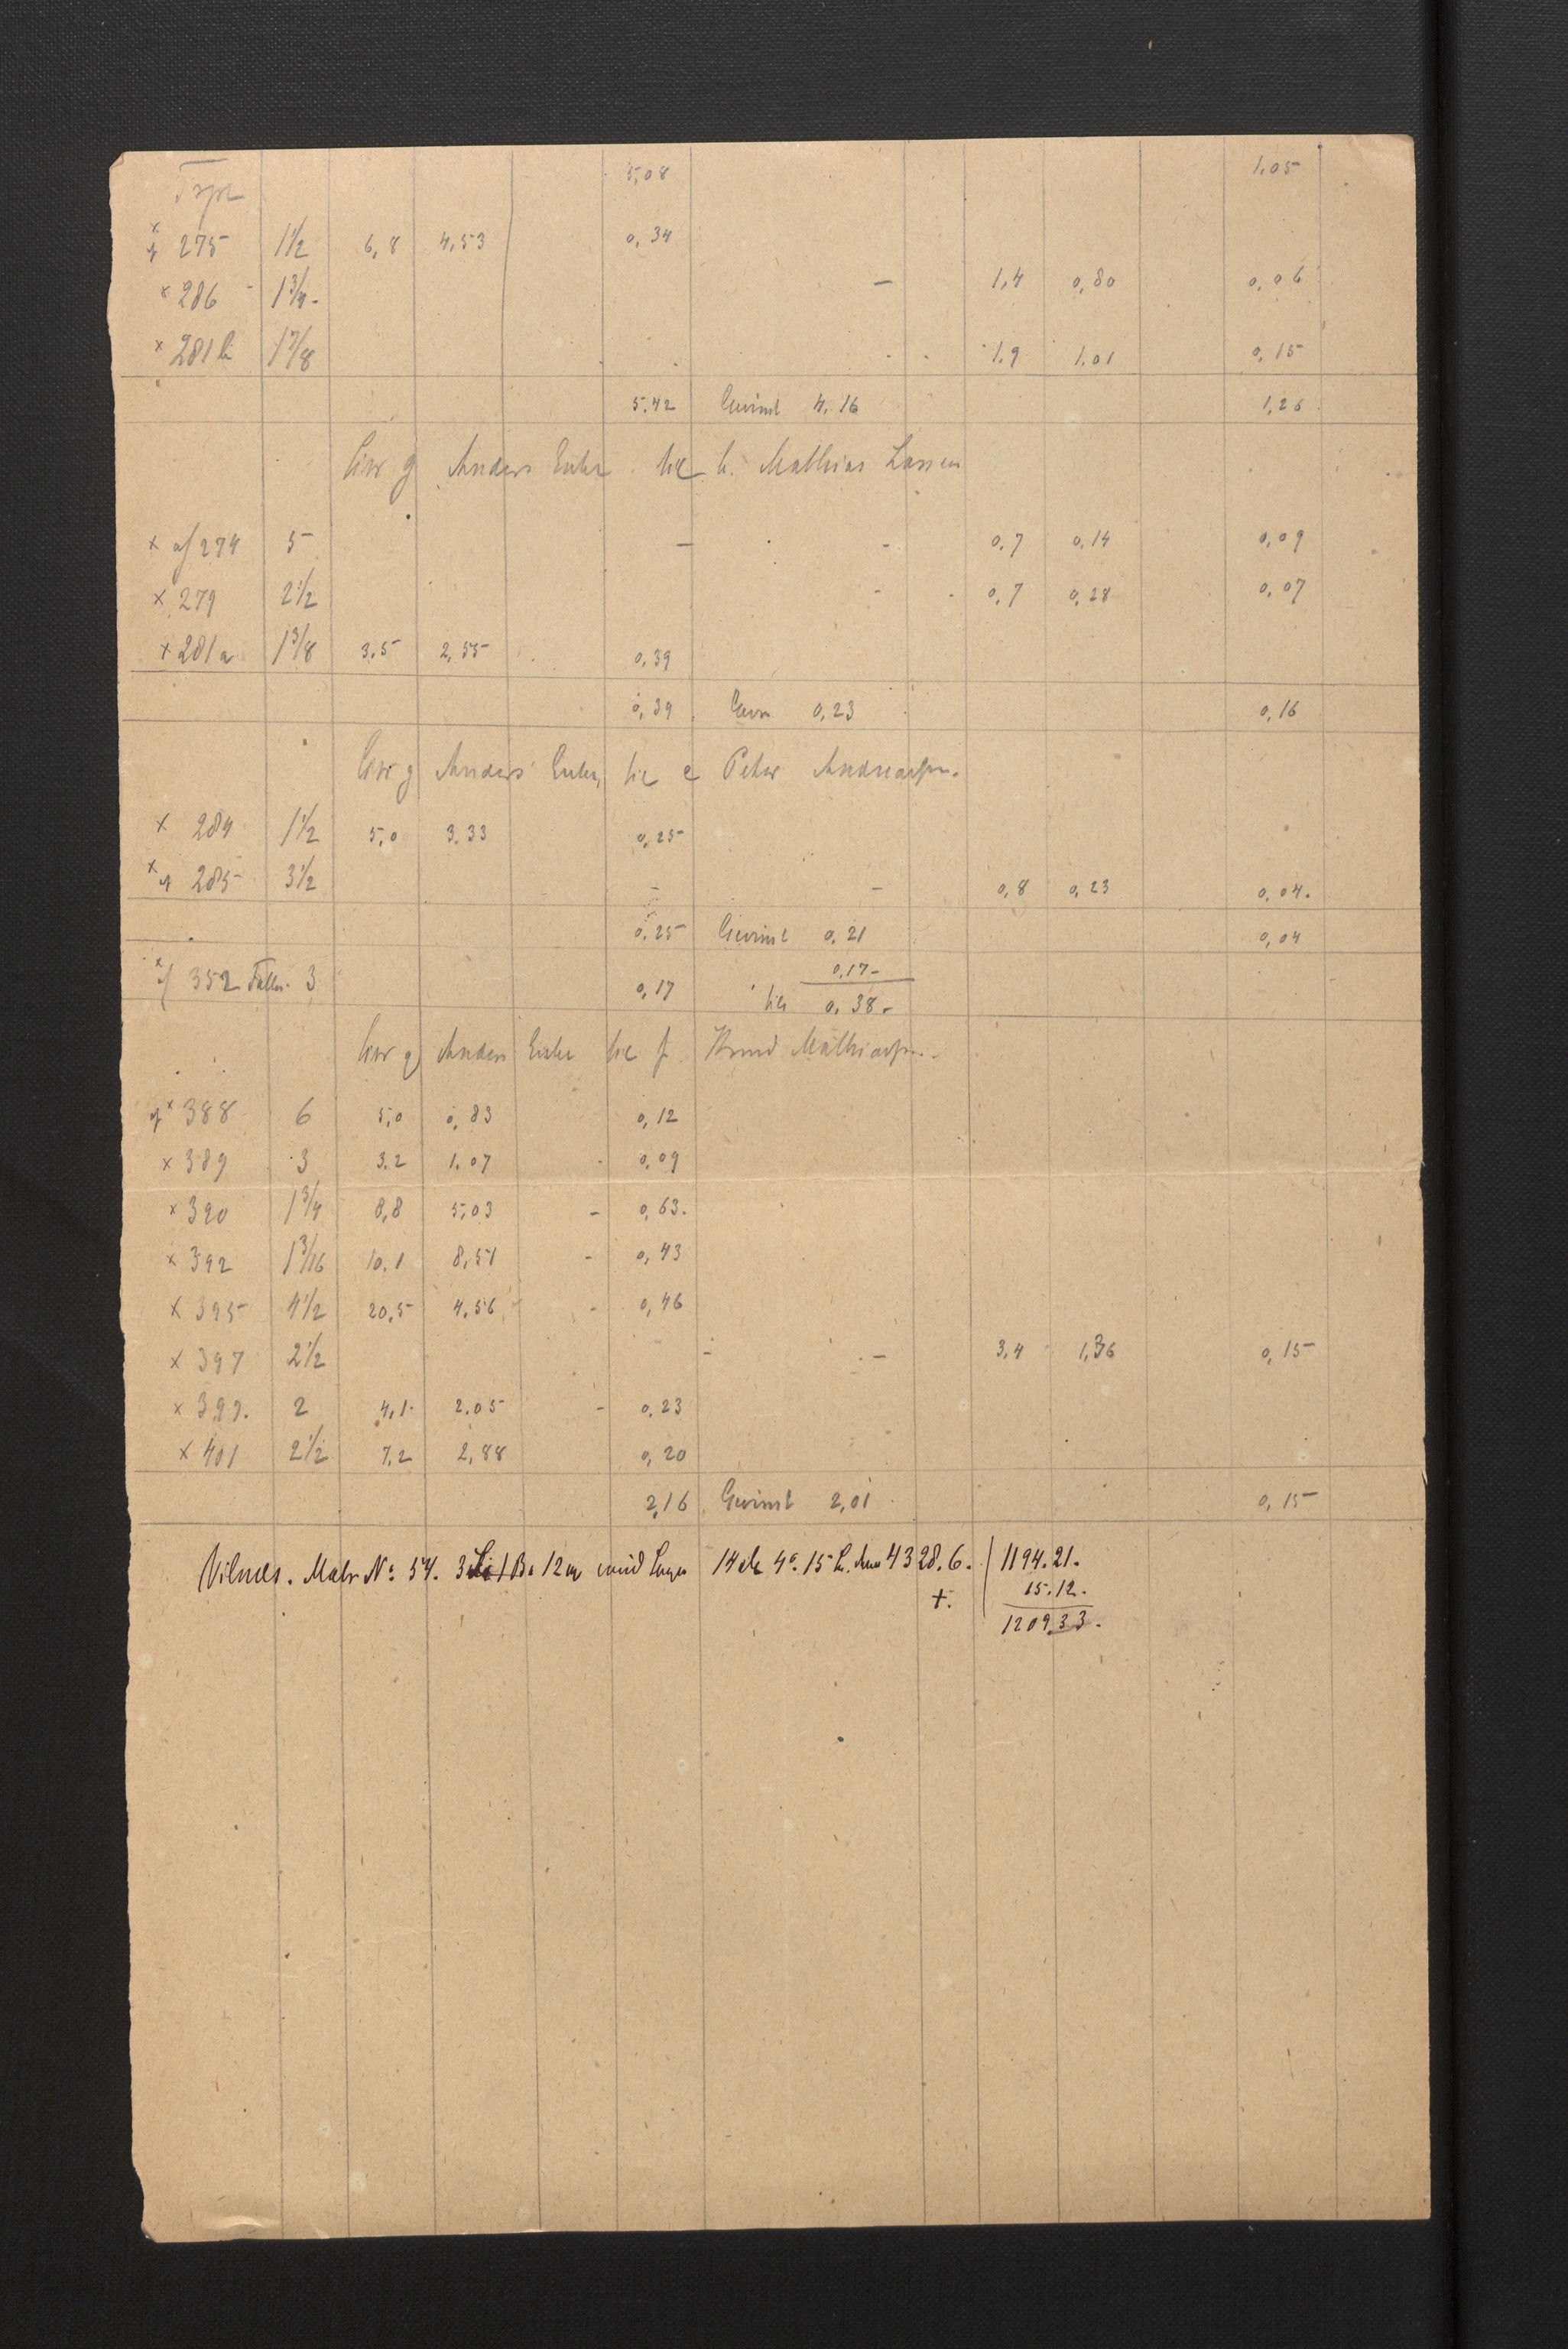 Trpt 5,08 1,05
x af 275 1 1/2 6,8 4,53 0,34
x 286 - 1 3/4 - — 1,4 0,80 0,06
x 281 b 1 7/8 1.9 1.01 0,15
5,42 Gevinst 4,16 1,26
g Anders Enke til h. Mathias Lassen
x af 274 5 — - 0,7 0,14 0,09
x 279 2 1/2 - 0,7 0,28 0,07
x 281 a 1 3/8 3,5 2,55 0,39
0,39 Gevn 0,23 0,16
g Anders Enke, til e Peter Andreassn.
x 284 1 1/2 5,0 3.33 0,25
x af 285 3 1/2 - — 0,8 0,23 0,04.
0,25 Gevinst 0,21 0,04
0,17 -
x af 352 3 0,17 til 0,38 -
g Anders Enke til f. Knud Mathiassn.
af x 388 6 5,0 0,83 0,12
x 389 3 3.2 1.07 0,09
x 390 1 3/4 8,8 5,03 - 0,63.
x 392 1 3/16 10.1 8,51 - 0,43
x 395 4 1/2 20,5 4,56 - 0,46
x 397 2 1/2 - — 3,4 1,36 0,15
x 399. 2 4,1 2.05 - 0,23
x 401 2 1/2 7,2 2,88 0,20
2,16 Gevinst 2,01 0,15
Vilnes. Matr No 54. 3 1 B. 12 14 4 15 4328.6. / 1194.21.
+. 15.12.
1209.33.